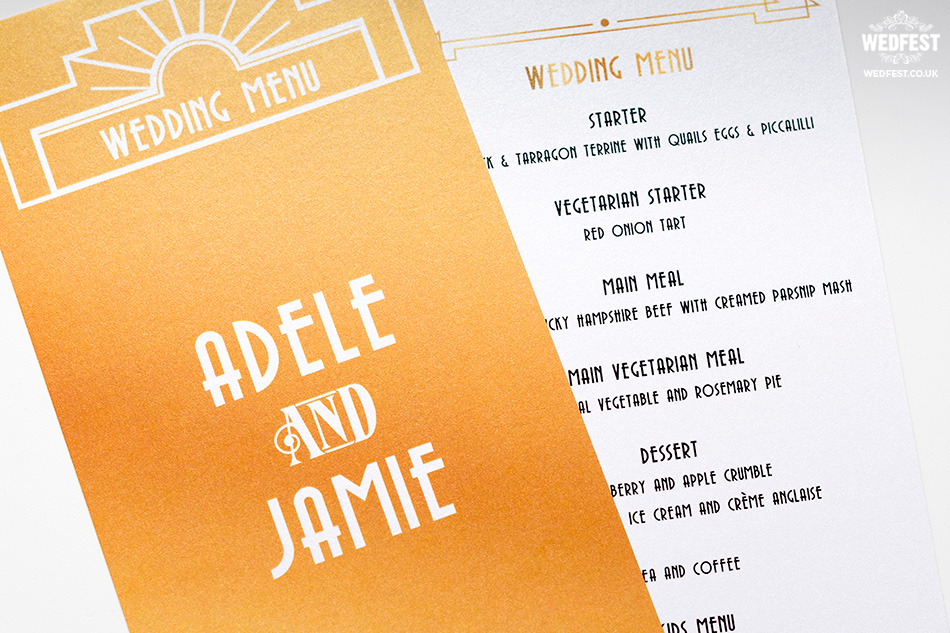 WEDDING MENU
ADELE
AND
JAMIE
WEDDING MENU
STARTER
& TARRAGON TERRINE WITH QUAILS EGGS & PICCALILLI
VEGETARIAN STARTER
RED ONION TART
MAIN MEAL
HAMPSHIRE BEEF WITH CREAMED PARSNIP MASH
MAIN VEGETARIAN MEAL
VEGETABLE AND ROSEMARY PIE
DESSERT
BERRY AND APPLE CRUMBLE
ICE CREAM AND CRÈME ANGLAISE
AND COFFEE
MENU
WEDFEST
WEDFEST.CO.UK